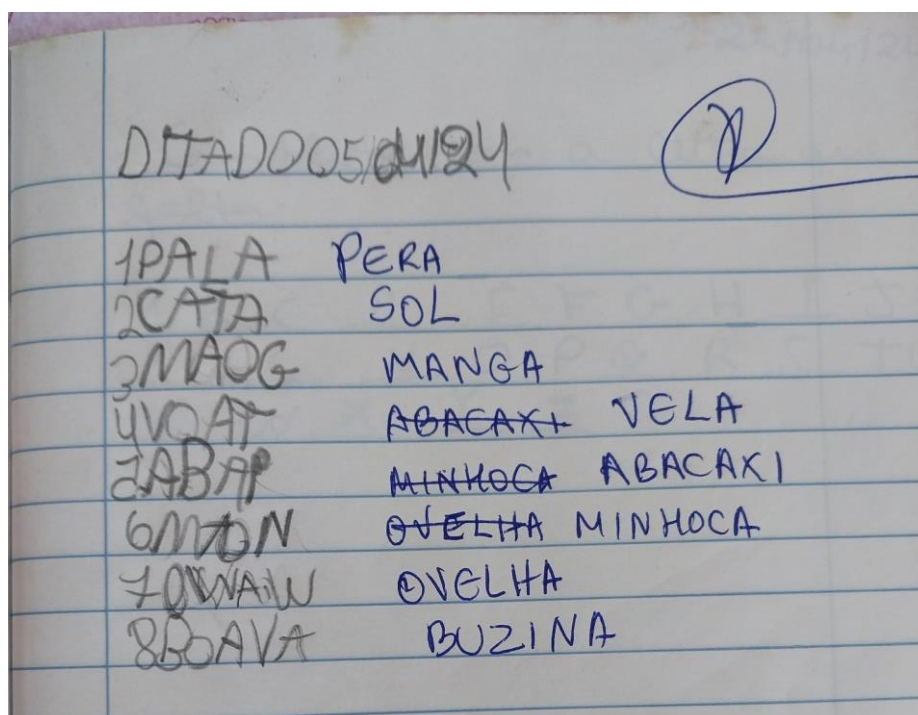 DITADO 05/04/24
1PALA PERA
2CATA SOL
3MAOG MANGA
4VOAT ABACAXI VELA
ABAP MINHOCA ABACAXI
6 OVELHA MINHOCA
7 OVELHA
8BOAVA BUZINA